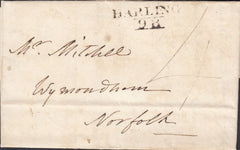 DARLING
Mr. Mitchell
Wymondham
Norfolk